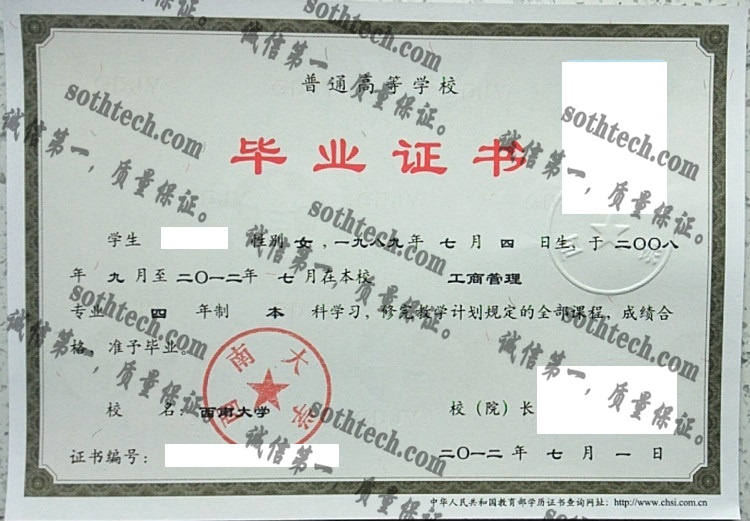 普通高等学校
毕业证书
学生 性别 女 ,一九八九年 七 月 四 日生,于 二〇〇八
年 九 月至 二〇一二年 七 月在本校 工商管理
专业 四 年制 本 科学习,修完教学计划规定的全部课程,成绩合
格,准予毕业。
校 名:西南大学 校(院)长
西南大学
证书编号: 二〇一二年 七 月 一 日
中华人民共和国教育部学历证书查询网址:http://www.chsi.com.cn
sothtech.com
诚信第一,质量保证。
sothtech.com
诚信第一,质量保证。
sothtech.com
诚信第一,质量保证。
sothtech.com
诚信第一,质量保证。
sothtech.com
诚信第一,质量保证。
sothtech.com
诚信第一,质量保证。
sothtech.com
诚信第一,质量保证。
sothtech.com
诚信第一,质量保证。